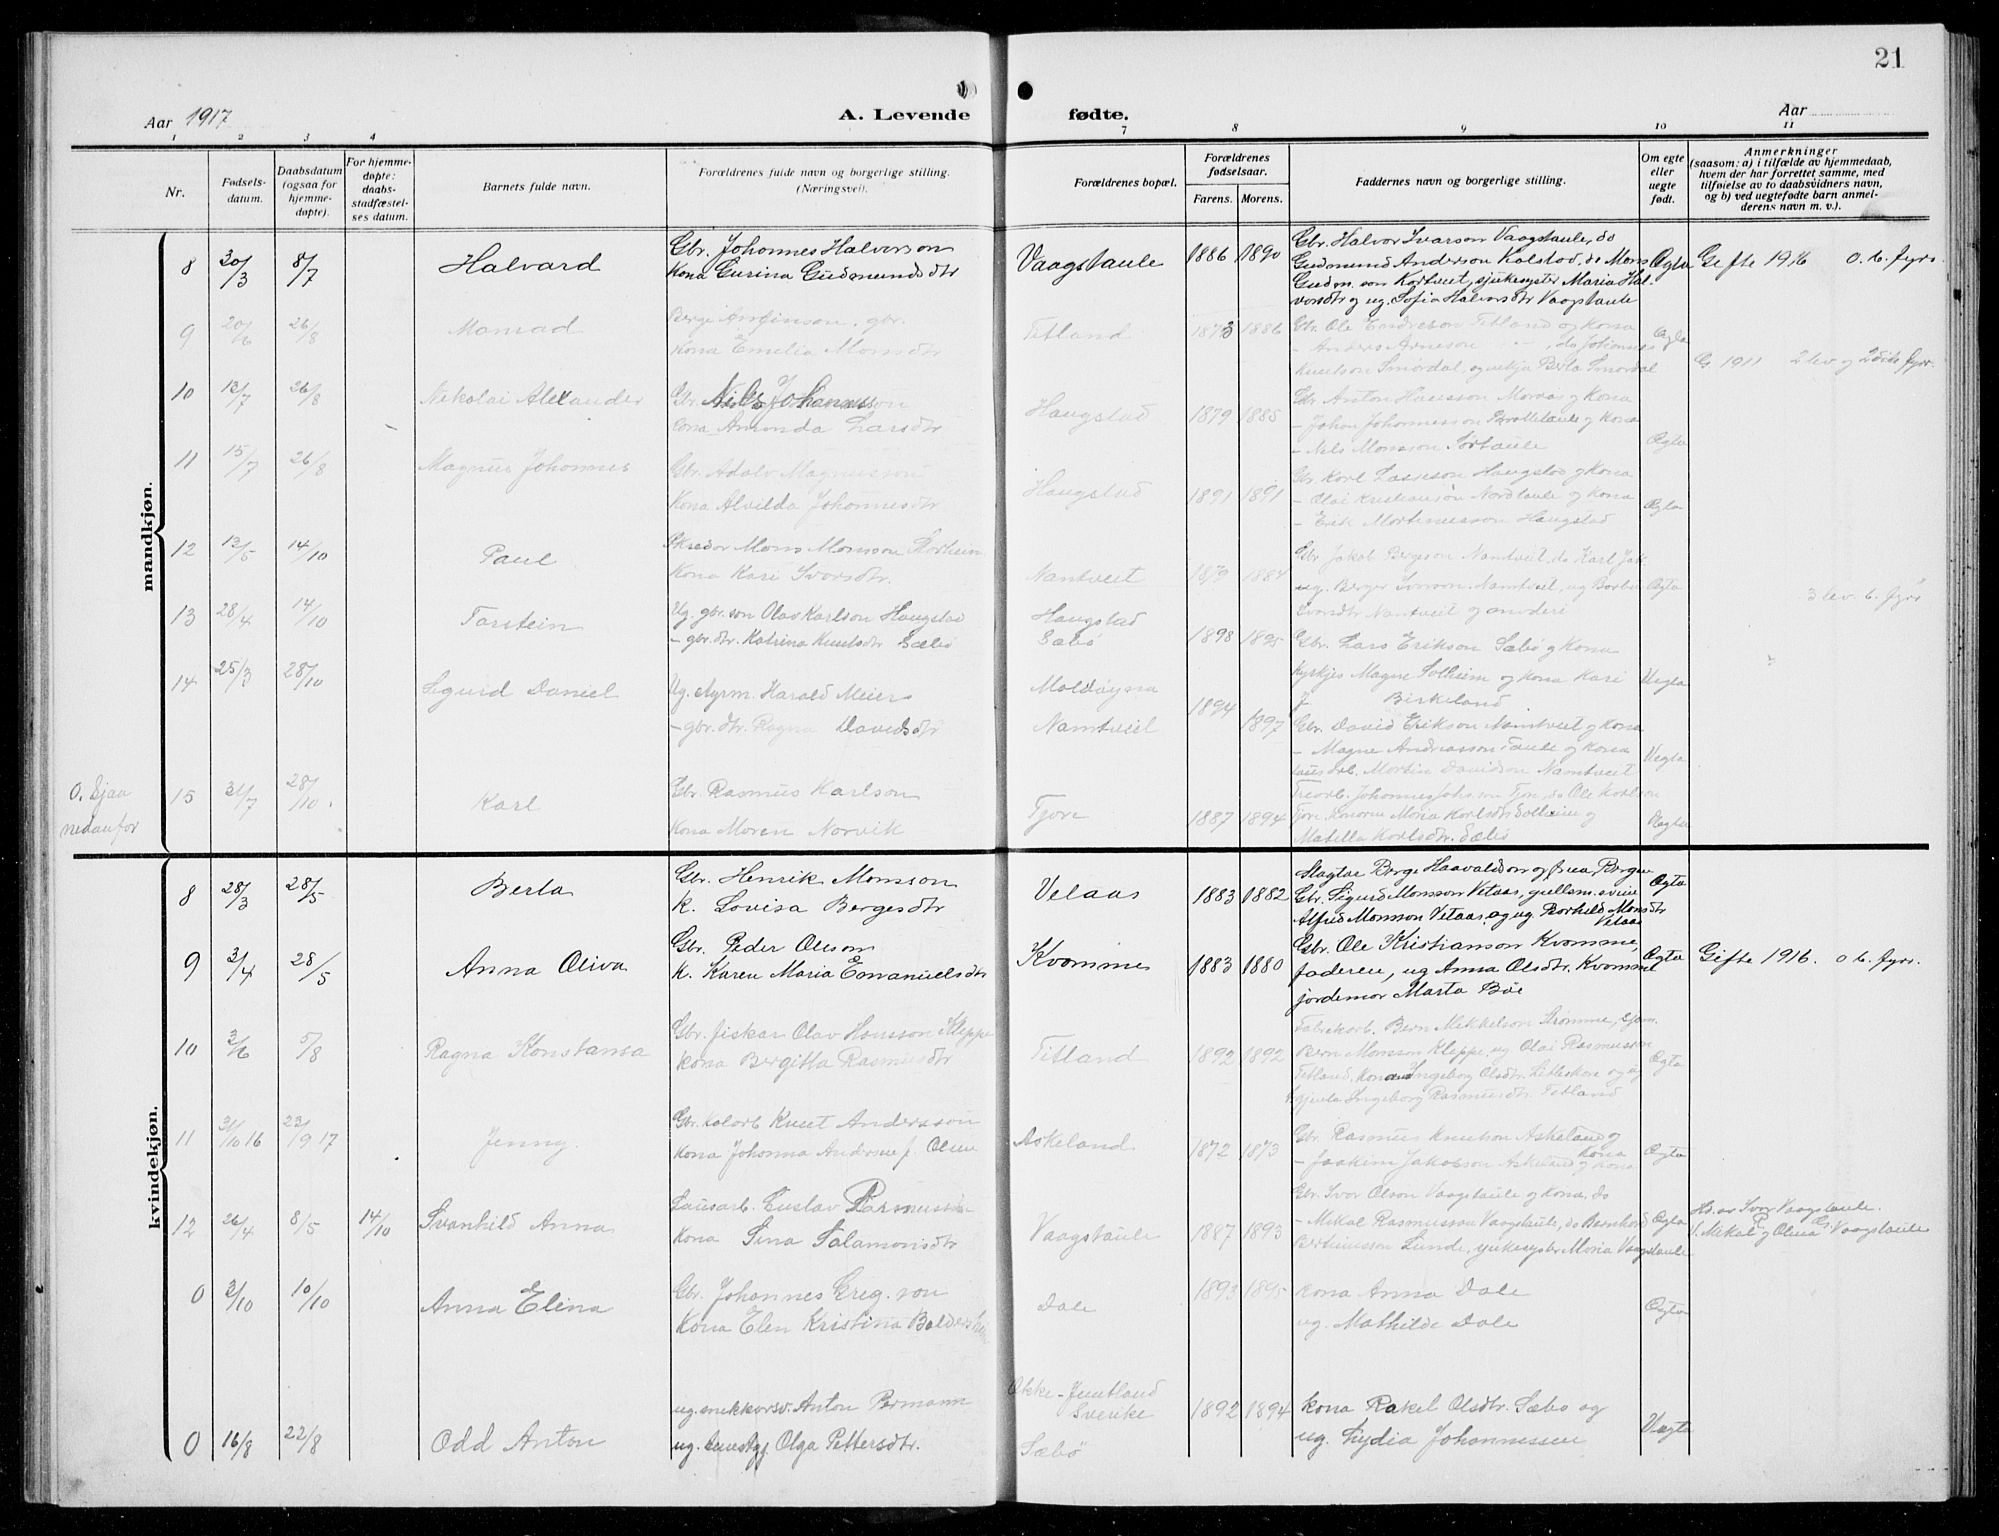 21
Aar 1917
A. Levende fødte.
Aar
1 2 3 4 7 8 9 10 11
Nr.
Fødsels-
datum.
Daabsdatum
(ogsaa for
hjemme-
døpte).
For hjemme-
døpte:
daabs-
stadfæstel-
ses datum.
Barnets fulde navn.
Forældrenes fulde navn og borgerlige stilling.
(Næringsvei).
Forældrenes bopæl.
Forældrenes
fødselsaar.
Farens. Morens.
Faddernes navn og borgerlige stilling.
Om egte
eller
uegte
født.
Anmerkninger
(saasom: a) i tilfælde av hjemmedaab,
hvem der har forrettet samme, med
tilføielse av to daabsvidners navn,
og b) ved uegtefødte barn anmel-
derens navn m. v.).
mandkjøn.
8 20/3 8/7 Halvard
Gbr. Johannes Halvorson
Kona Gurina Gudmundsdtr
Vaagstaule 1886 1890
Gbr. Halvor Ivarson Vaagstaule, do
Gudmund Anderson Kolstad, do Mons
Gudm. son Kortveit, sjukesyster Maria Hal-
vorsdtr og ug. Sofia Halvorsdtr Vaagstaule
Øgta Gifte 1916 0. b. fyrr.
9 20/6 26/8 Monrad
Berge gbr.
Kona Emelia Monsdtr
Titland 1873 1886
Gbr. Ole Endreson Titland og kona
- Anders Arneson - , do Johannes
Knutson Smørdal, og enkja Berta Smørdal
Øgta
G. 1911 2 lev og 2 fyrr.
10 13/7 26/8 Nikolai Alexander
Gbr. Nils Johannesson
Kona Amanda Larsdtr
Haugstad 1879 1885
Gbr Anton Hansson Morvas og Kona
- Johan Johannesson og Kona
- Nils Monsson Sørtaule
Øgta
11 15/7 26/8 Magnus Johannes
Gbr. Adolv Magnusson
Kona Alvilda Johannesdtr
Haugstad 1891 1891
Gbr Karl Larsson Haugstad og Kona
- Olai Kristianson Nordtaule og Kona
- Erik Mortinusson Haugstad
Øgta
12 13/5 14/10 Paul
Skredar Mons Monsson Storheim
Kona Kari Ivarsdtr.
Namtveit 1879 1884
Gbr Jakob Bergeson Namtveit, do Karl Jak.
ug. Berger Namtveit, ug Borbra
Ivarsdtr Namtveit og andre
Øgta
3 lev. b. fyrr
13 28/4 14/10 Torstein
Ug. gbr.son Olav Karlson Haugstad
- gbr.dtr. Katrina Knutsdtr Sæbø
Haugstad
Sæbø
1898 1895
Gbr. Lars Erikson Sæbø og Kona
Kyrkjes. Magne Solheim og kona Kari
f. Birkeland
Uegta
14 25/3 28/10 Sigurd Daniel
Ug. Harald Meier
- gbr.dtr. Ragna Davidsdtr
Moldøyna
Namtveit
1894 1897
Gbr. David Erikson Namtveit og Kona
- Magne Andreasson Taule og Kona
lausarb. Mortin Davidson Namtveit
Uegta
0. Sjaa
nedanfor
15 31/7 28/10 Karl
Gbr. Rasmus Karlson
Kona Maren Norvik
Fjore 1887 1894
Trearb. Johannes Johs.son Fjon, do Ole Karlson
Fjore, Konorne Maria Karlsdtr Solheim og
Matilla Karlsdtr. Sæbø
Øgta
kvindekjøn.
8 28/3 28/5 Berta
Gbr. Henrik Monsson
K. Lovisa Bergesdtr
Vetaas 1883 1882
Slagtar Berge Haavaldson og frua, Bergen
Gbr. Sigurd Monsson Vetaas, gullsm.svein
Alfred Monsson Vetaas, og ug. Borhild Monsdtr
Vetaas
Øgta
9 3/4 28/5 Anna Oliva
Gbr. Peder Olsson
K. Karen Maria Emanuelsdtr
Kvomme 1883 1880
Gbr. Ole Kristianson Kvomme,
faderen, ug Anna Olsdtr. Kvomme
jordemor Marta Bøe
Øgta Gifte 1916. 0 b. fyrr.
10 3/6 5/8 Ragna Konstansa
Gbr. fiskar Olav Hansson Kleppe
Kona Bergitta Rasmusdtr
Titland 1892 1892
Fabrikarb. Bern Mikkelson Strømme, sjøm.
Bern Monsson Kleppe, ug. Olai Rasmusson
Titland, Kona Ingeborg Olsdtr. Litleskare og ug
gjenta Ingeborg Rasmusdtr Titland
Øgta
11 31/10 16 23/9 17 Jenny
Gbr. Kolarb Knut Andersson
Kona Johanna Andersen f. Olsen
Askeland 1872 1873
Gbr Rasmus Knutson Askeland og
Kona
- Joakim Jakobsson Askeland og Kona
Øgta
12 26/4 8/5 14/10 Svanhild Anna
Lausarb. Gustav Rasmusson
Kona Sina Salamonsdtr
Vaagstaule 1887 1893
Gbr. Ivar Olson Vaagstaule og Kona, do
- Mikal Rasmusson Vaagstaule, do Bernhard
Bertinusson Lunde, sjukesystr Maria Vaagstaule
Øgta
Hd. av Ivar Vaagstaule.
V. Mikal R. og Olina G. Vaagstaule
0 3/10 10/10 Anna Elina
Gbr. Johannes Greg. son
Kona Elen Kristina
Dale 1893 1895
Kona Anna Dale
ug. Mathilde Dale
Øgta
0 16/8 22/8 Odd Anton
ug. Anton Permann
ug. Olga Pettersdtr.
Økke - Jemtland
Sverike
Sæbø
1892 1894
kona Rakel Olsdtr. Sæbø og
ug. Lydia Johannessen
Uægta